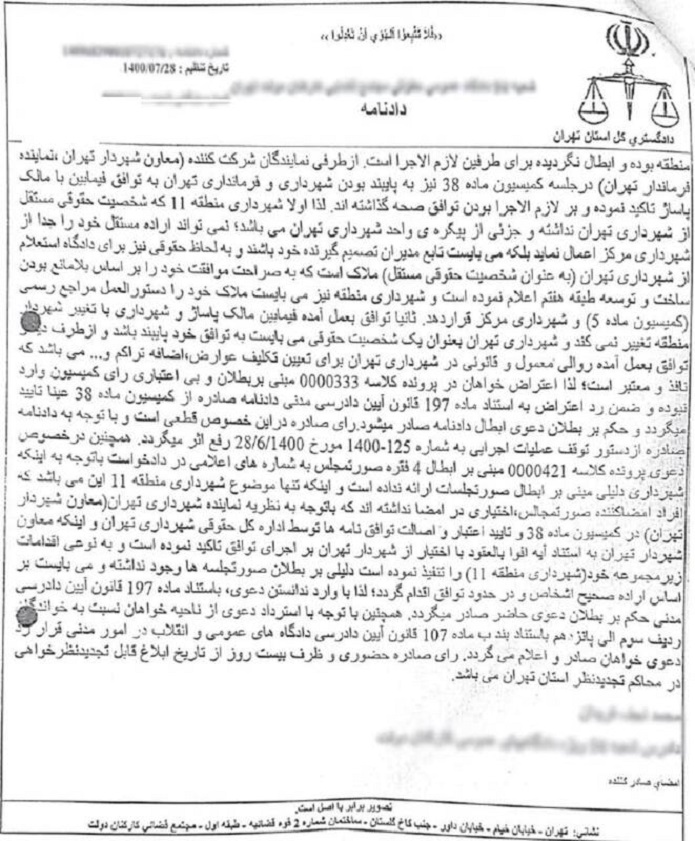 «فَلا تَتَّبِعُوا الْهَوى أَنْ تَعْدِلُوا»
تاریخ تنظیم : 1400/07/28
دادنامه
دادگستری کل استان تهران
منطقه بوده و ابطال نگردیده برای طرفین لازم الاجرا است. ازطرفی نمایندگان شرکت کننده (معاون شهردار تهران ،نماینده
فرماندار تهران) درجلسه کمیسیون ماده 38 نیز به پایبند بودن شهرداری و فرمانداری تهران به توافق فیمابین با مالک
پاساژ تاکید نموده و بر لازم الاجرا بودن توافق صحه گذاشته اند. لذا اولا شهرداری منطقه 11 که شخصیت حقوقی مستقل
از شهرداری تهران نداشته و جزئی از پیکره ی واحد شهرداری تهران می باشد؛ نمی تواند اراده مستقل خود را جدا از
شهرداری مرکز اعمال نماید بلکه می بایست تابع مدیران تصمیم گیرنده خود باشند و به لحاظ حقوقی نیز برای دادگاه استعلام
از شهرداری تهران (به عنوان شخصیت حقوقی مستقل) ملاک است که به صراحت موافقت خود را بر اساس بلامانع بودن
ساخت و توسعه طبقه هفتم اعلام نموده است و شهرداری منطقه نیز می بایست ملاک خود را دستورالعمل مراجع رسمی
(کمیسیون ماده 5) و شهرداری مرکز قراردهد. ثانیا توافق بعمل آمده فیمابین مالک پاساژ و شهرداری با تغییر شهردار
منطقه تغییر نمی کند و شهرداری تهران بعنوان یک شخصیت حقوقی می بایست به توافق خود پایبند باشد و ازطرف
توافق بعمل آمده روالی معمول و قانونی در شهرداری تهران برای تعیین تکلیف عوارض،اضافه تراکم و... می باشد که
نافذ و معتبر است؛ لذا اعتراض خواهان در پرونده کلاسه 0000333 مبنی بربطلان و بی اعتباری رای کمیسیون وارد
نبوده و ضمن رد اعتراض به استناد ماده 197 قانون آیین دادرسی مدنی دادنامه صادره از کمیسیون ماده 38 عینا تایید
میگردد و حکم بر بطلان دعوی ابطال دادنامه صادر میشود.رای صادره دراین خصوص قطعی است و با توجه به دادنامه
صادره ازدستور توقف عملیات اجرایی به شماره 125-1400 مورخ 28/6/1400 رفع اثر میگردد. همچنین درخصوص
دعوی پرونده کلاسه 0000421 مبنی بر ابطال 4 فقره صورتمجلس به شماره های اعلامی در دادخواست باتوجه به اینکه
شهرداری دلیلی مبنی بر ابطال صورتجلسات ارائه نداده است و اینکه تنها موضوع شهرداری منطقه 11 این می باشد که
افراد امضاکننده صورتمجالس،اختیاری در امضا نداشته اند که باتوجه به نظریه نماینده شهرداری تهران(معاون شهردار
تهران) در کمیسیون ماده 38 و تایید اعتبار و اصالت توافق نامه ها توسط اداره کل حقوقی شهرداری تهران و اینکه معاون
شهردار تهران به استناد آیه افوا بالعقود با اختیار از شهردار تهران بر اجرای توافق تاکید نموده است و به نوعی اقدامات
زیرمجموعه خود(شهرداری منطقه 11) را تنفیذ نموده است دلیلی بر بطلان صورتجلسه ها وجود نداشته و می بایست بر
اساس اراده صحیح اشخاص و در حدود توافق اقدام گردد؛ لذا با وارد ندانستن دعوی، باستناد ماده 197 قانون آیین دادرسی
مدنی حکم بر بطلان دعوی حاضر صادر میگردد. همچنین با توجه با استرداد دعوی از ناحیه خواهان نسبت به خواندگان
ردیف سوم الی پانزدهم باستناد بند ب ماده 107 قانون آیین دادرسی دادگاه های عمومی و انقلاب در امور مدنی قرار رد
دعوی خواهان صادر و اعلام می گردد. رای صادره حضوری و ظرف بیست روز از تاریخ ابلاغ قابل تجدیدنظرخواهی
در محاکم تجدیدنظر استان تهران می باشد.
امضای صادر کننده
تصویر برابر با اصل است.
نشانی: تهران - خیابان خیام - خیابان داور - جنب کاخ گلستان - ساختمان شماره 2 قوه قضائیه - طبقه اول - مجتمع قضائی کارکنان دولت